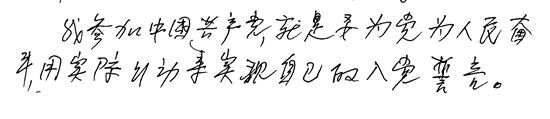 我参加中國共产党,就是要为党为人民奋
斗,用实际行动来实现自己的入党誓言。